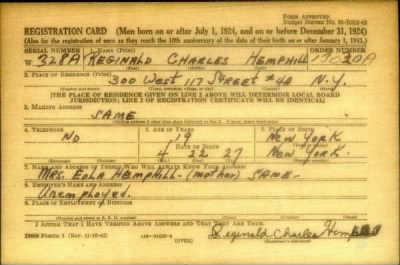 REGISTRATION CARD (Men born on or after July 1, 1924, and on or before December 31, 1924)
(Also for the registration of men as they reach the 18th anniversary of the date of their birth on or after January 1, 1943.)
SERIAL NUMBER 1. NAME (Print) ORDER NUMBER
W. 328A REGINALD CHARLES HEMPHILL 13020A
2. PLACE OF RESIDENCE (Print)
300 West 117 Street #4B N.Y.
[THE PLACE OF RESIDENCE GIVEN ON LINE 2 ABOVE WILL DETERMINE LOCAL BOARD
JURISDICTION; LINE 2 OF REGISTRATION CERTIFICATE WILL BE IDENTICAL]
3. MAILING ADDRESS
SAME
4. TELEPHONE 5. AGE IN YEARS 6. PLACE OF BIRTH
NO 19 NEW YORK
DATE OF BIRTH
4 22 27 NEW YORK.
7. NAME AND ADDRESS OF PERSON WHO WILL ALWAYS KNOW YOUR ADDRESS
MRS. EOLA HEMPHILL-(mother) SAME-
8. EMPLOYER'S NAME AND ADDRESS
Unemployed.
9. PLACE OF EMPLOYMENT OR BUSINESS
I AFFIRM THAT I HAVE VERIFIED ABOVE ANSWERS AND THAT THEY ARE TRUE.
DSS FORM 1 (Rev. 11-16-42) (OVER) Reginald Charles Hemphill